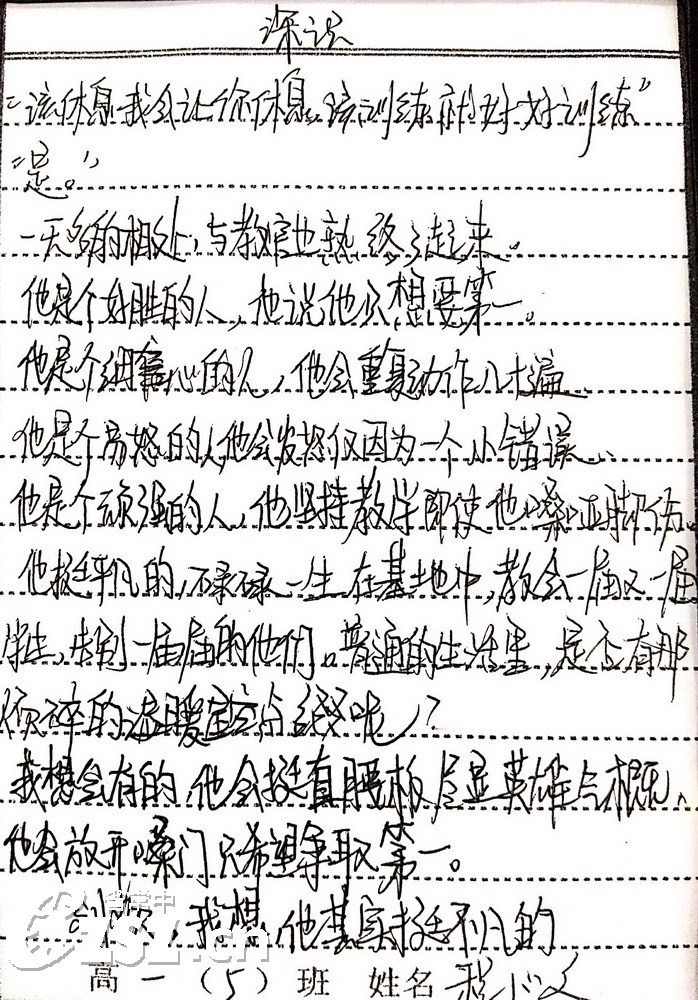 深识
“该休息我会让你休息,该训练就好好训练”
“是。”
一天多的相处,与教官也熟络了起来。
他是个好胜的人,他说他只想要第一。
他是个细心的人,他会重复动作几十遍
他是个易怒的人他会发怒仅因为一个小错误、
他是个顽强的人,他坚持教学即使他嗓哑脚伤。
他挺平凡的,碌碌一生在基地中,教会一届又一届
学生,告别一届届的他们。普通的生活里,是否有那
烦碎的温暖点缀呢?
我想会有的,他会挺直腰板,尽显英雄气概、
他会放开嗓门只希望争取第一。
,我想,他其实挺不凡的
高一(5)班 姓名